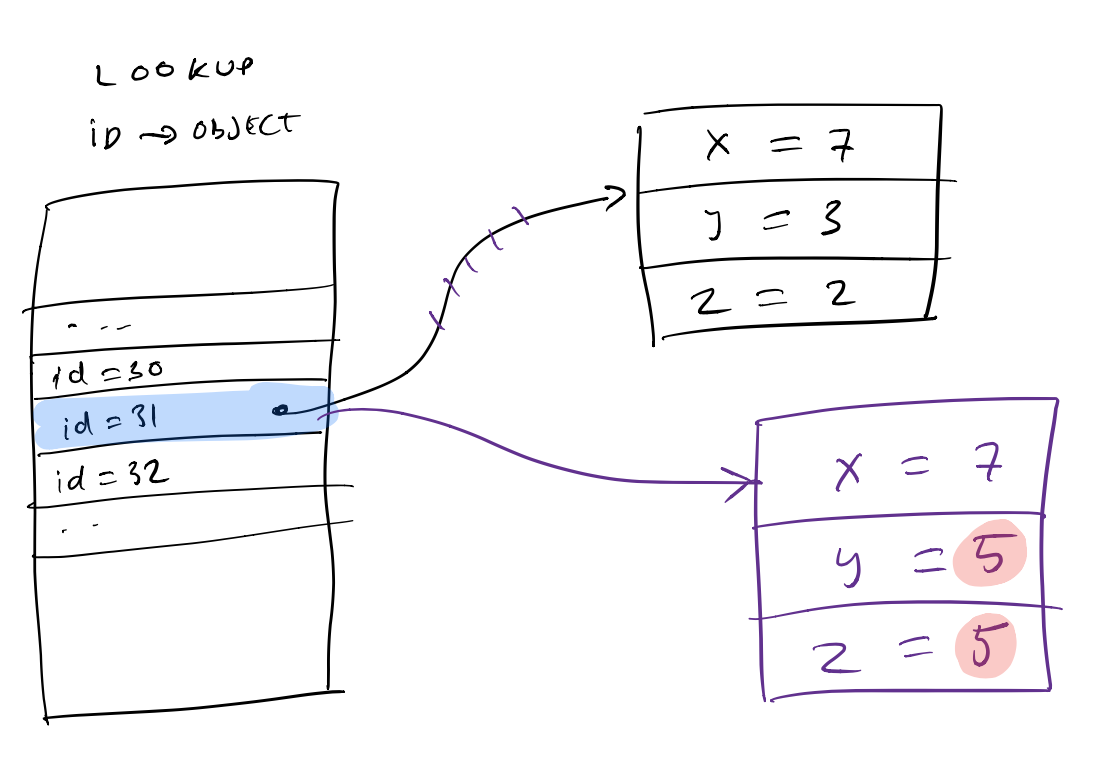 LOOKUP
ID → OBJECT
. --
id = 30
id = 31
id = 32
. -
x = 7
y = 3
z = 2
x = 7
y = 5
z = 5